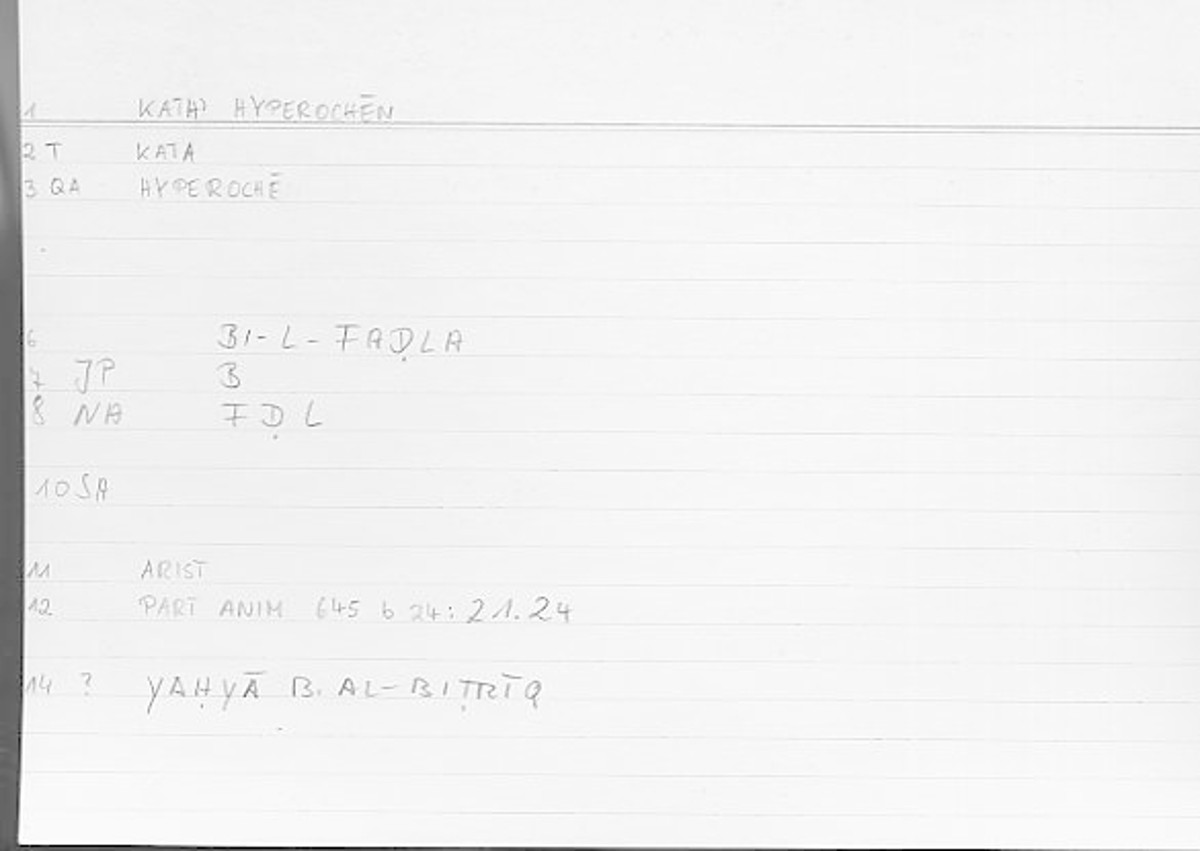 1 KATH' HYPEROCHĒN
2 T KATA
3 QA HYPEROCHĒ
6 BI-L-FAḌLA
7 JP B
8 NA FḌL
10 SA
11 ARIST
12 PART ANIM 645 b 24: 21.24
14 ? YAḤYĀ B. AL-BIṬRĪQ